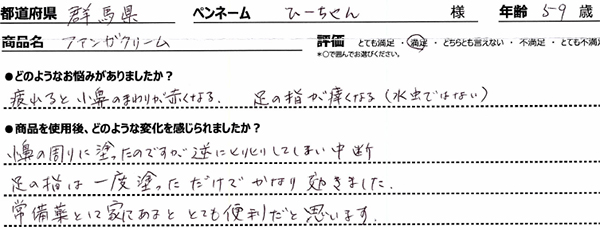 都道府県 群馬県 ペンネーム ひーちゃん 様 年齢 59 歳
商品名 ファンガクリーム 評価 とても満足・満足・どちらとも言えない・不満足・とても不満
*○で囲んでお選びください。
●どのようなお悩みがありましたか?
疲れると小鼻のまわりが赤くなる. 足の指が痒くなる(水虫ではない)
●商品を使用後、どのような変化を感じられましたか?
小鼻の周りに塗ったのですが逆にヒリヒリしてしまい中断
足の指は一度塗っただけでかなり効きました.
常備薬として家にあるととても便利だと思います.